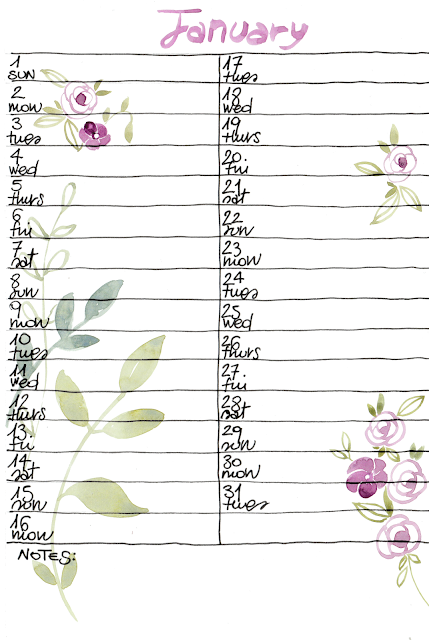 January
1
sun
2
mon
3
tues
4
wed
5
thurs
6
fri
7
sat
8
sun
9
mon
10
tues
11
wed
12
thurs
13.
fri
14
sat
15
sun
16
mon
17
tues
18
wed
19
thurs
20.
fri
21
sat
22
sun
23
mon
24
tues
25
wed
26
thurs
27.
fri
28
sat
29
sun
30
mon
31
tues
NOTES: